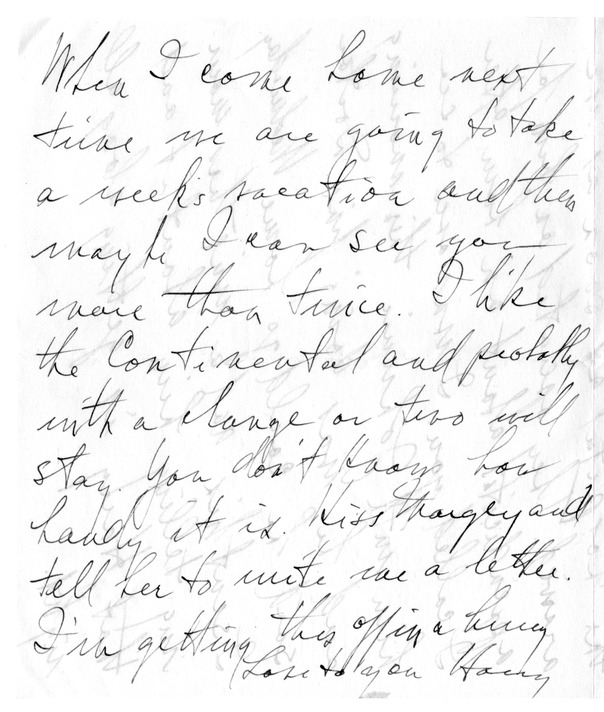 When I come home next
time we are going to take
a week's vacation and then
maybe I can see you
more than twice. I like
the Continental and probably
with a change or two will
stay. You don't know how
handy it is. Kiss Margey and
tell her to write me a letter.
I'm getting this off in a hurry
Love to you Harry